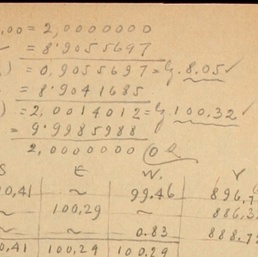 ,00 = 2,0000000
= 8.9055697
) = 0,9055697 = lg. 8.05 ✓
= 8.9041685
) = 2,0014012 = lg 100.32 ✓
= 9.9985988
2,0000000
S E W. Y
0,41 ~ 99.46 896,7
~ 100,29 ~ 886,3
~ ~ 0.83 888.7
0,41 100,29 100,29